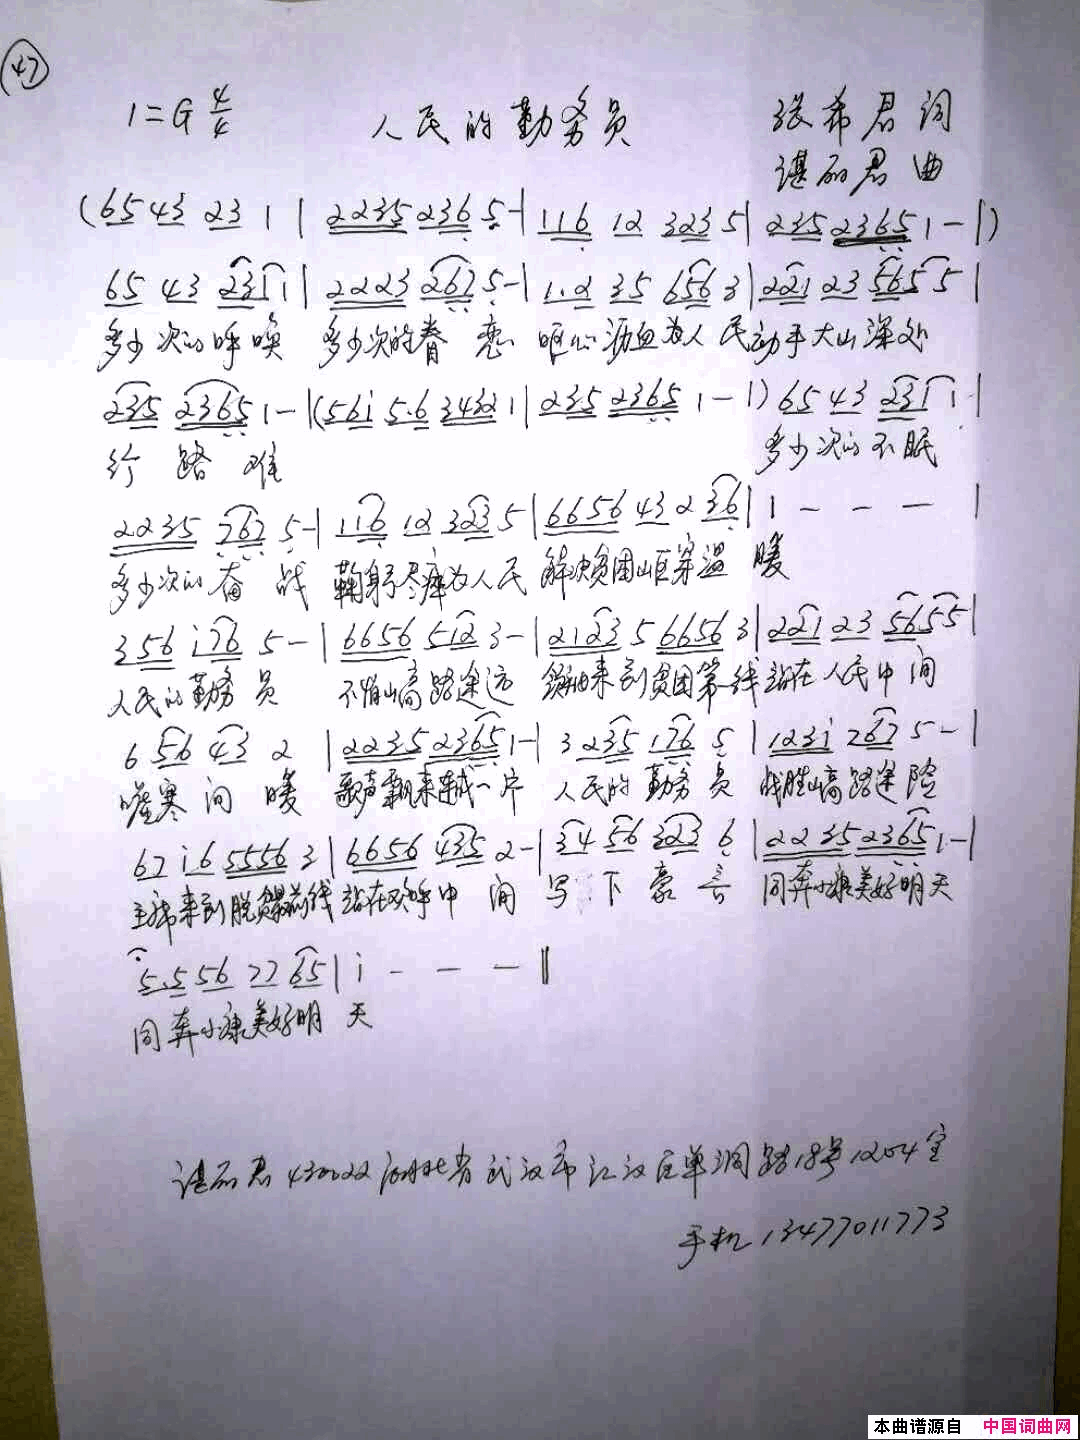 47
1=G 4/4 人民的勤务员 张希君词
谌丽君曲
(65 43 23 1 | 2235 236 5 - | 116 12 323 5 | 235 2365 1 - |)
65 43 231 1 | 2223 267 5 - | 1·2 35 656 3 | 221 23 565 5 |
多少次的呼唤 多少次的眷恋 呕心沥血为人民 动手大山深处
235 2365 1 - | (561 5·6 3432 1 | 235 2365 1 - |) 65 43 231 1 |
行路难 多少次的不眠
2235 767 5 - | 116 12 323 5 | 6656 43 2 36 | 1 - - - |
多少次的奋战 鞠躬尽瘁为人民 解决贫困山区穿温暖
3 56 i76 5 - | 6656 512 3 - | 2123 5 6656 3 | 221 23 5655 |
人民的勤务员 不怕山高路途远 来到贫困第一线 站在人民中间
6 56 43 2 | 2235 2365 1 - | 3 235 176 5 | 123i 767 5 - |
嘘寒问暖 歌声飘来连成一片 人民的勤务员 战胜山高路途险
67 i6 5556 3 | 6656 435 2 - | 34 56 323 6 | 2235 2365 1 - |
主席来到脱贫最前线 站在欢呼中间 写下豪言 同奔小康美好明天
5·5 56 77 65 | i - - - ‖
同奔小康美好明天
谌丽君 430022 湖北省武汉市江汉区单洞路18号1204室
手机 13477011773
本曲谱源自 中国词曲网